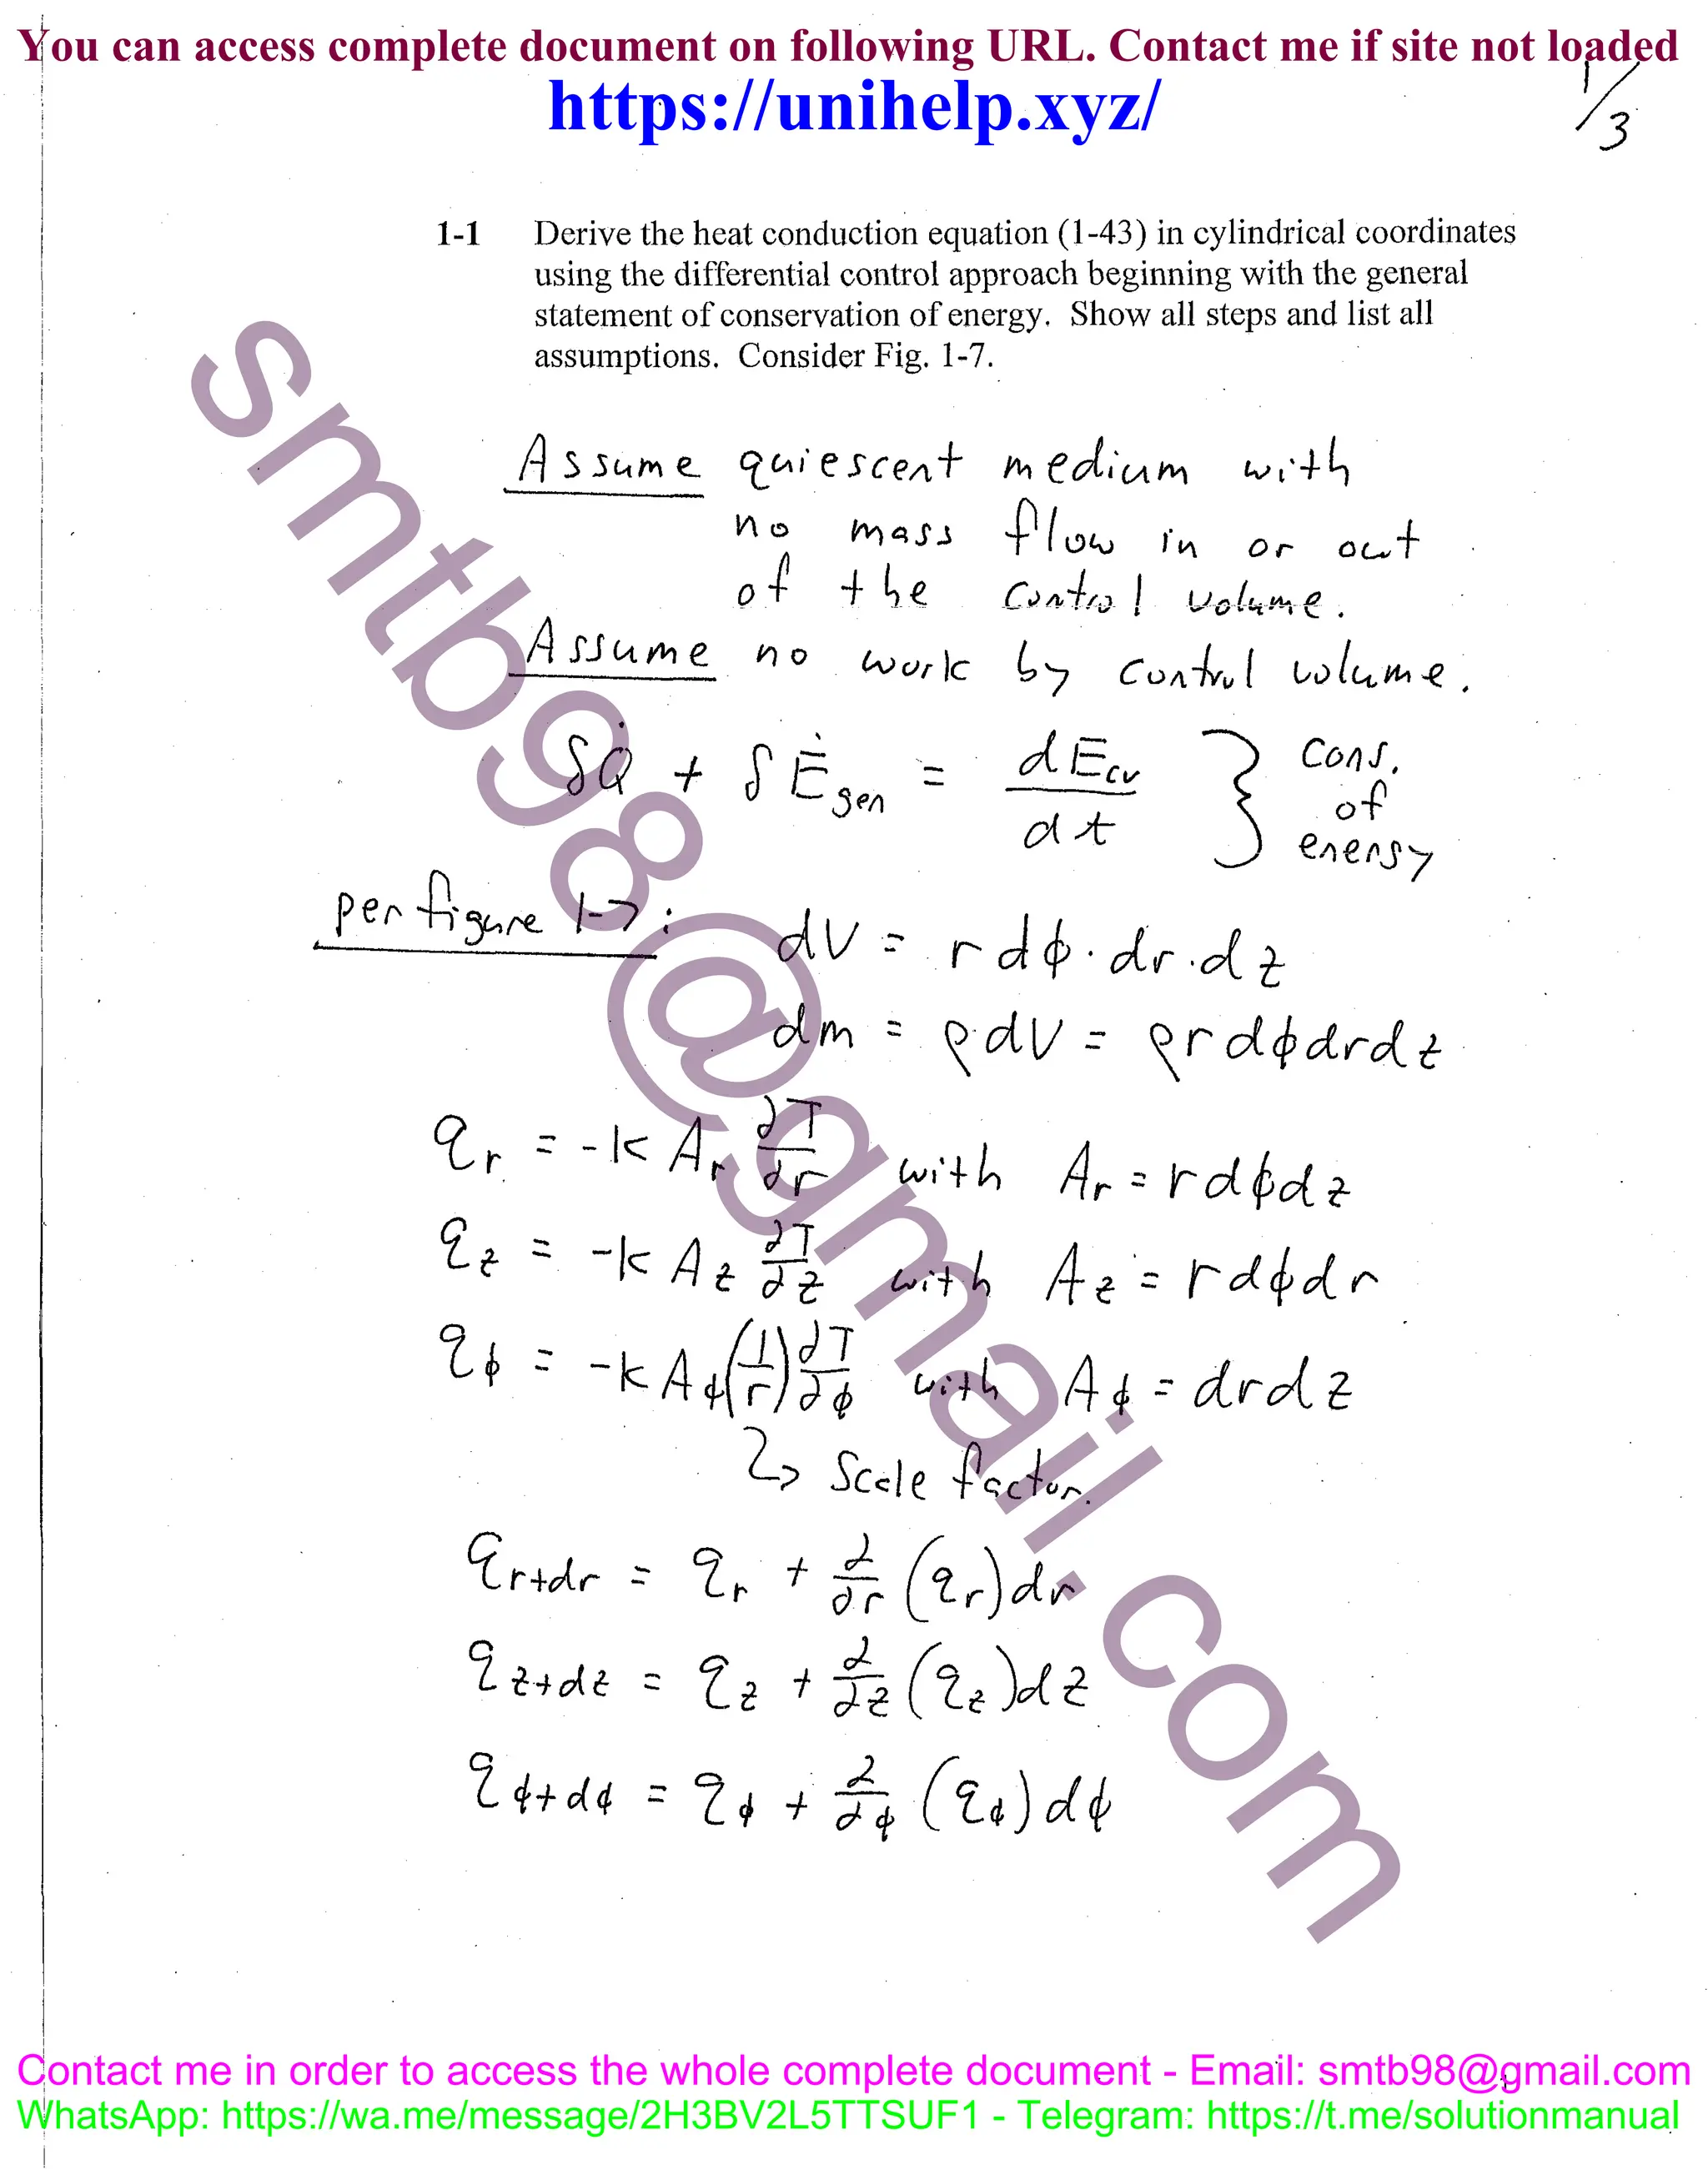 You can access complete document on following URL. Contact me if site not loaded
https://unihelp.xyz/
1/3
1-1 Derive the heat conduction equation (1-43) in cylindrical coordinates
using the differential control approach beginning with the general
statement of conservation of energy. Show all steps and list all
assumptions. Consider Fig. 1-7.
Assume quiescent medium with
no mass flow in or out
of the control volume.
Assume no work by control volume.
δQ̇ + δĖgen = dEcv/dt } Cons. of energy
per figure 1-7: dV = r dϕ · dr · dz
dm = ρ dV = ρ r dϕ dr dz
qr = -k Ar ∂T/∂r with Ar = r dϕ dz
qz = -k Az ∂T/∂z with Az = r dϕ dr
qϕ = -k Aϕ (1/r) ∂T/∂ϕ with Aϕ = dr dz
↳ Scale factor.
qr+dr = qr + ∂/∂r (qr) dr
qz+dz = qz + ∂/∂z (qz) dz
qϕ+dϕ = qϕ + ∂/∂ϕ (qϕ) dϕ
smtb98@gmail.com
Contact me in order to access the whole complete document - Email: smtb98@gmail.com
WhatsApp: https://wa.me/message/2H3BV2L5TTSUF1 - Telegram: https://t.me/solutionmanual